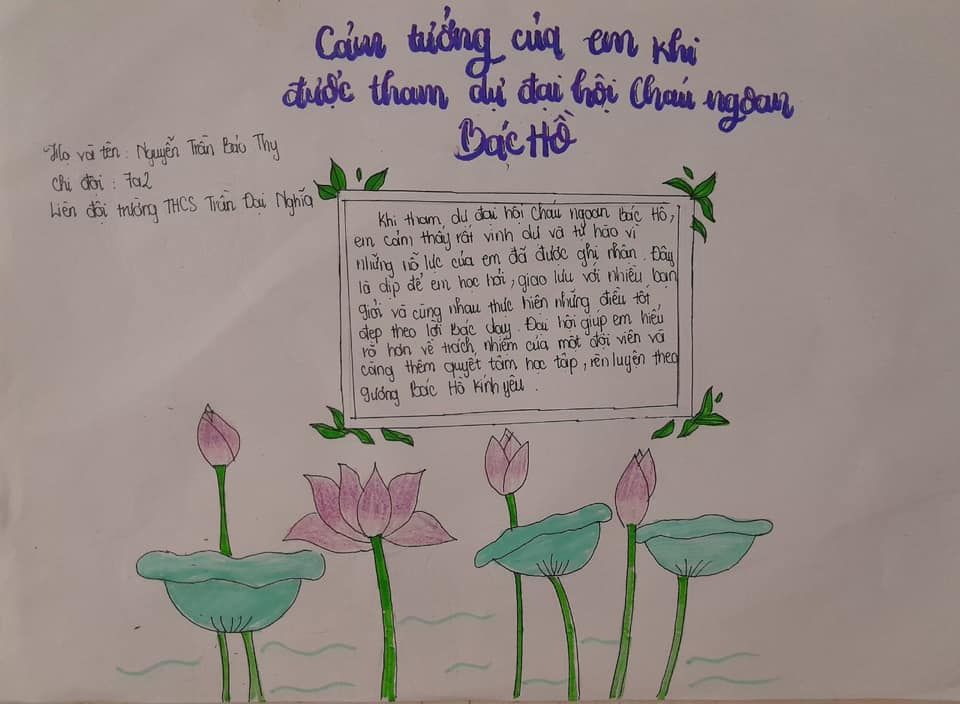 Cảm tưởng của em khi
được tham dự đại hội Cháu ngoan
Bác Hồ
Họ và tên : Nguyễn Trần Bảo Thy
Chi đội : 7a2
Liên đội trường THCS Trần Đại Nghĩa
Khi tham dự đại hội Cháu ngoan Bác Hồ,
em cảm thấy rất vinh dự và tự hào vì
những nỗ lực của em đã được ghi nhận. Đây
là dịp để em học hỏi, giao lưu với nhiều bạn
giỏi và cùng nhau thực hiện những điều tốt
đẹp theo lời Bác dạy. Đại hội giúp em hiểu
rõ hơn về trách nhiệm của một đội viên và
càng thêm quyết tâm học tập, rèn luyện theo
gương Bác Hồ kính yêu.